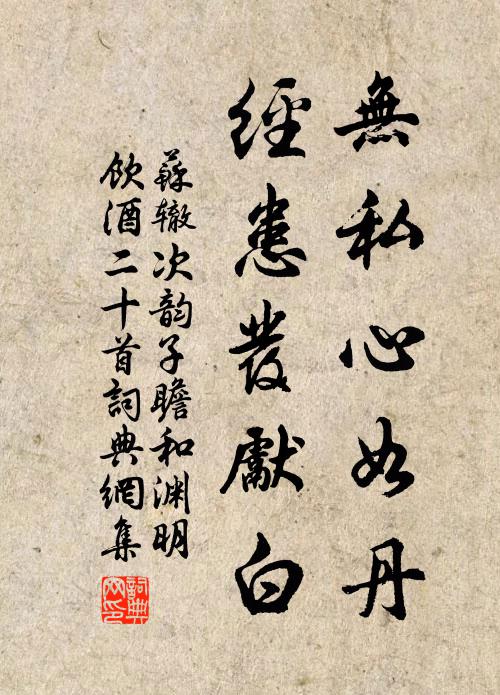 無私心如丹
經患發獻白
蘇辙次韵子瞻和渊明
飲酒二十首詞典網集
詞典
网印